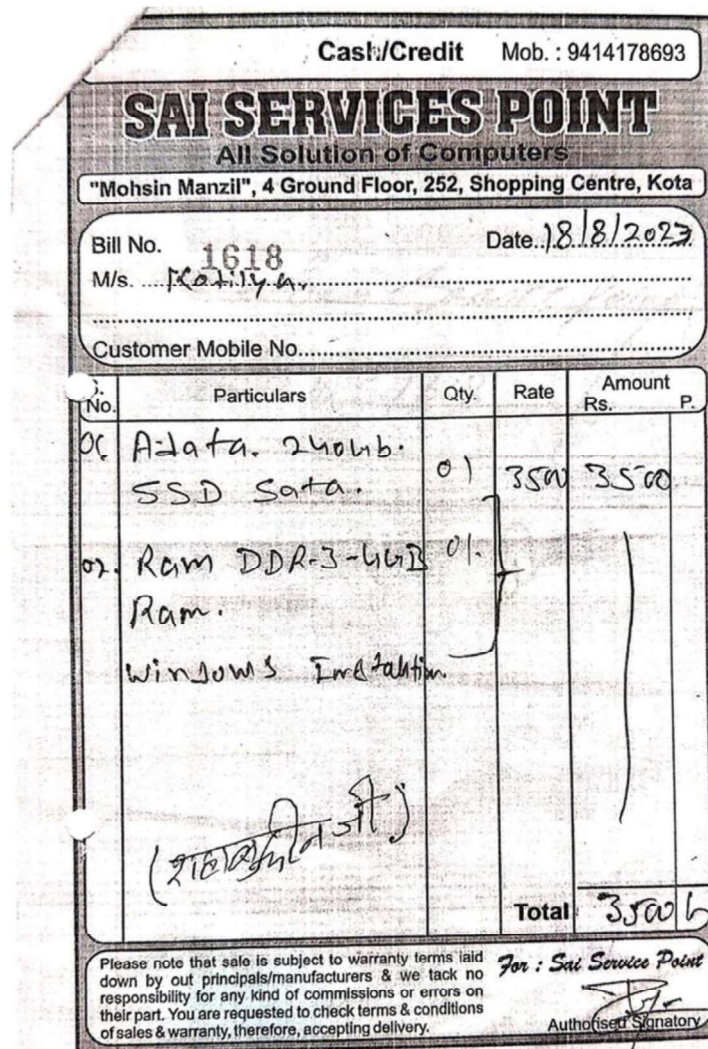 Cash/Credit Mob. : 9414178693
SAI SERVICES POINT
All Solution of Computers
"Mohsin Manzil", 4 Ground Floor, 252, Shopping Centre, Kota
Bill No. 1618 Date..18/8/2023
M/s.
Customer Mobile No.
No. Particulars Qty. Rate Amount
Rs. P.
01 A-data. 240Gb.
SSD Sata. 01 3500 3500
02. Ram DDR-3-4GB 01.
Ram.
Windows
Total 3500
Please note that sale is subject to warranty terms laid
down by out principals/manufacturers & we tack no
responsibility for any kind of commissions or errors on
their part. You are requested to check terms & conditions
of sales & warranty, therefore, accepting delivery.
For : Sai Service Point
Authorised Signatory